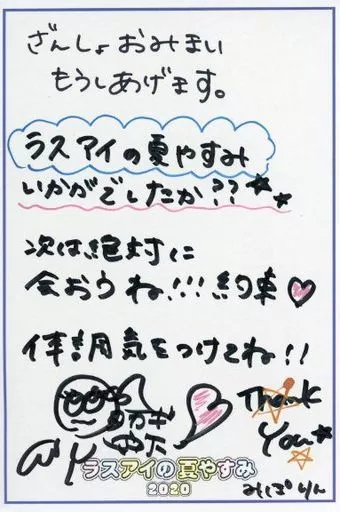 ざんしょおみまい
もうしあげます。
ラスアイの夏やすみ
いかがでしたか??★★
次は絶対に
会おうね!!!約束♡
体調気をつけてね!!
Thank
You★
ラスアイの夏やすみ
2020
みぽりん